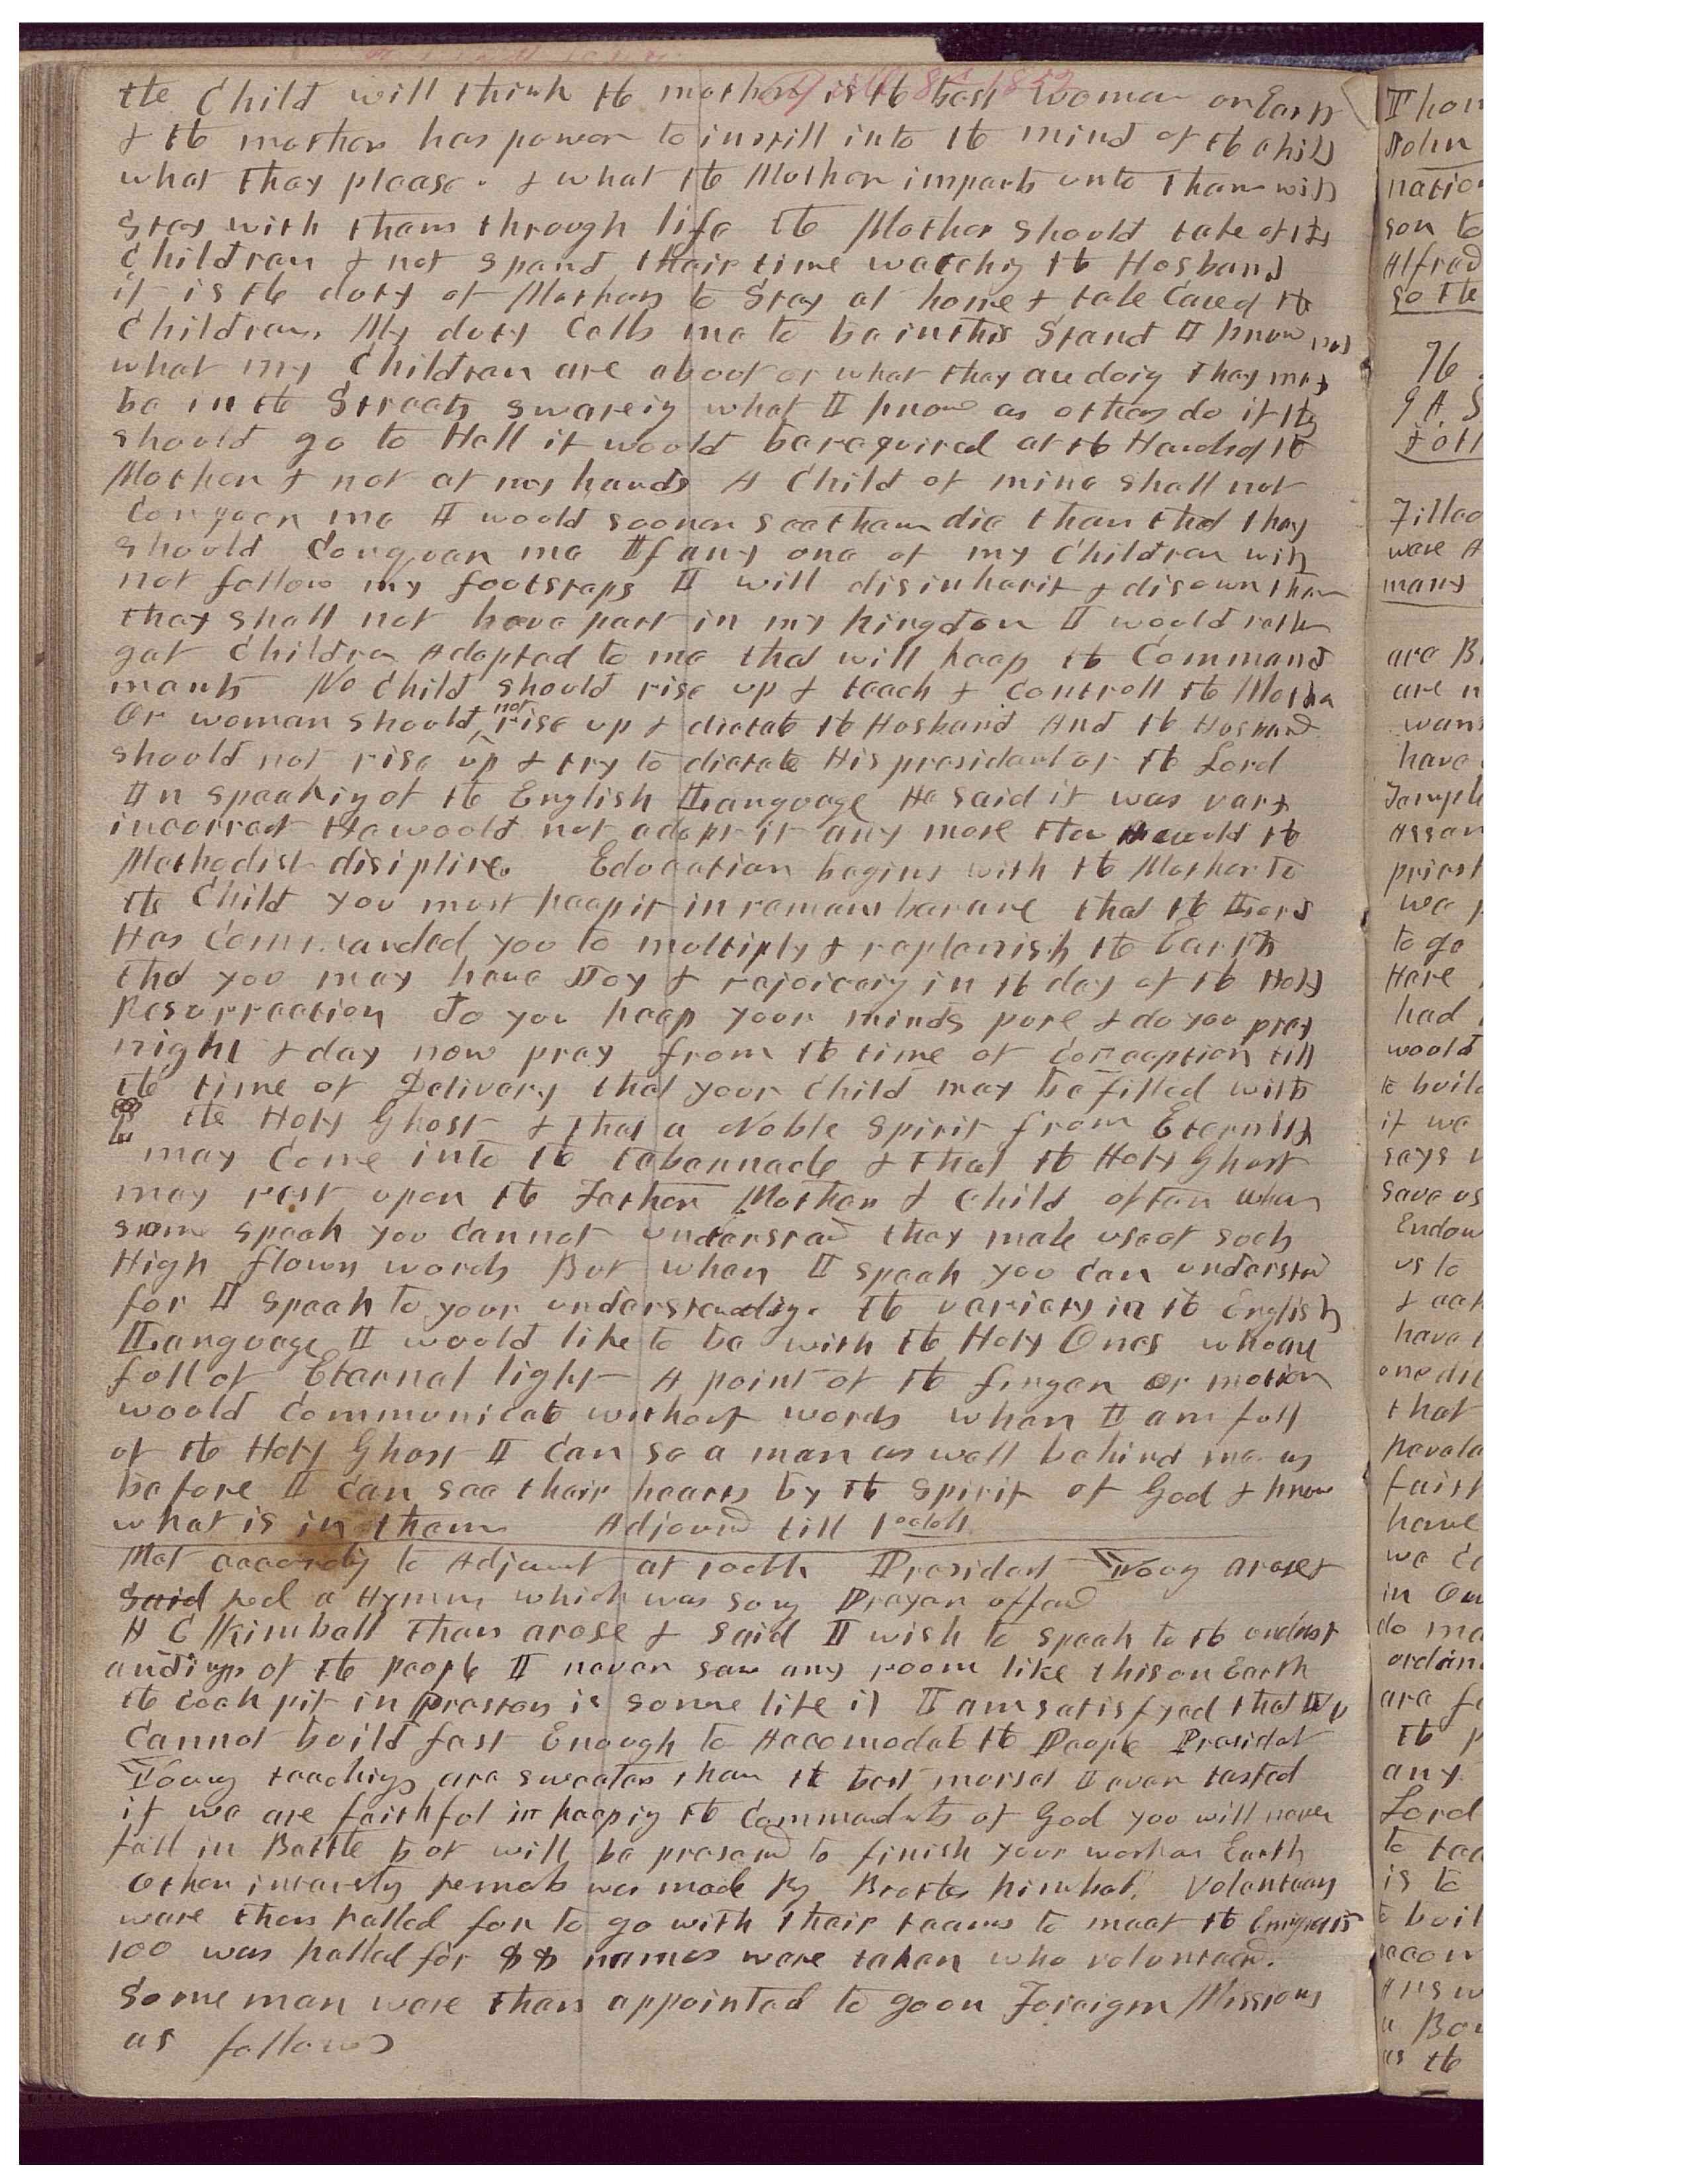 April 8th 1852
the Child will think the mother is the best woman on Earth
& the mother has power to instill into the mind of the child
what they please. & what the Mother imparts unto them will
stay with them through life the Mother should take of its
Children & not spend their time watchig the Husband
it is the duty of Mothers to Stay at home & take Care of the
Children. My duty Calls me to be in this Stand I know not
what my Children are about or what they are doig they may
be in the Streets swareig what I know as others do if they
should go to Hell it would be required at the Hands of the
Mother & not at my hands A Child of mine shall not
Conquer me I would sooner see them die than that they
should Conquer me If any one of my Children will
not follow my footsteps I will disinherit & disown them
they shall not have part in my kingdom I would rather
get Children Adopted to me that will keep the Command
ments No Child should rise up & teach & controll the Mother
Or woman should not rise up & dictate the Husband And the Husband
should not rise up & try to dictate His president or the Lord
In speakig of the English Language He said it was very
incorrect He would not adopt it any more than He would the
Methodist disipline. Education begins with the Mother to
the Child you must keep it in remembrance that the Lord
Has Commanded you to multiply & replenish the Earth
that you may have Joy & rejoiceig in the day of the Holy
Resurrection do you keep your minds pure & do you pray
night & day now pray from the time of Conception till
the time of Delivery that your child may be filled with
the Holy Ghost & that a Noble Spirit from Eternity
may Come into the tabernacle & that the Holy Ghost
may rest upon the Father Mother & child often when
some speak you Cannot understand they make use of such
High flown words But when I speak you can understand
for I speak to your understandig. the variety in the English
Language I would like to be with the Holy Ones who are
full of Eternal light A point of the finger or motion
would Communicate without words when I am full
of the Holy Ghost I can se a man as well behind me as
before I can see their hearts by the Spirit of God & know
what is in them Adjourned till 10 oclok
Met accordig to Adjunt at 10 oclk President Young arose &
said red a Hymn which was sung Prayer offered
H C Kimball then arose & said I wish to speak to the underst
andings of the people I never saw any room like this on Earth
the cock pit in preston is some like it I am satisfyed that We
Cannot build fast Enough to Accomodate the People President
Young teachigs are sweeter than the best morsel I ever tasted
if we are faithful in keepig the Commandmts of God you will never
fall in Battle but will be preserved to finish your work on Earth
other interestg remarks was made by Brother Kimball. Volunteers
were then kalled for to go with their teams to meet the Emigrats
100 was kalled for 88 names were taken who volunteered.
Some men were then appointed to go on Foreign Missions
as follows
John
son to
Alfred
so the
76
were
many
are
have
to go
Here
had
would
if we
says
save us
us to
that
have
in
any
Lord
is to
as the